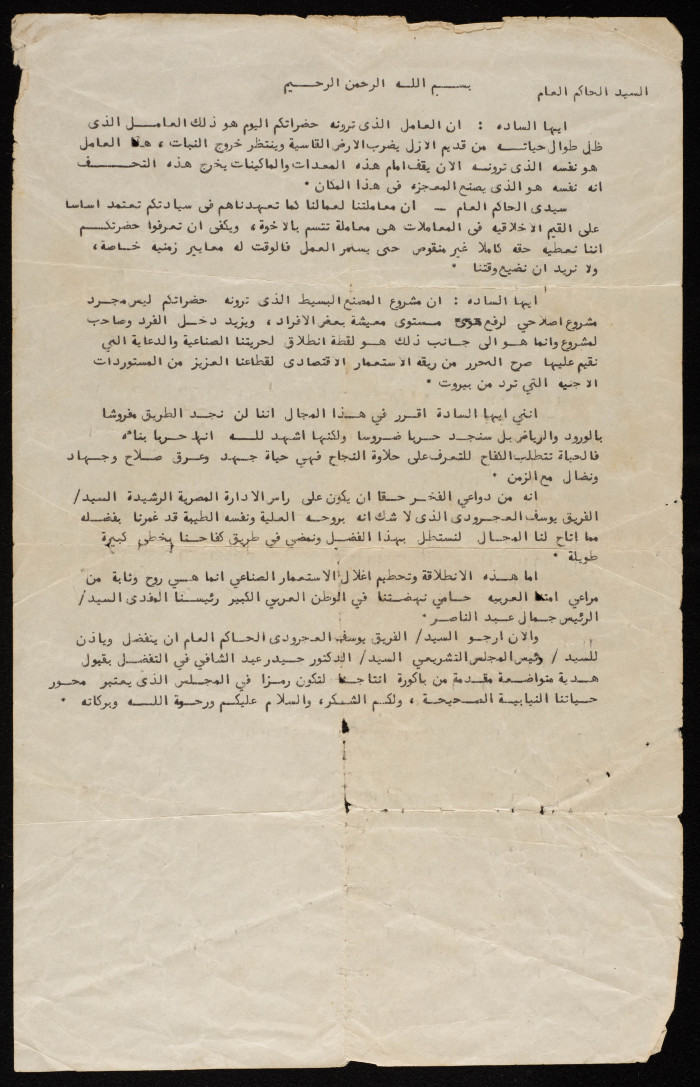 بسم الله الرحمن الرحيم
السيد الحاكم العام
ايها الساده : ان العامل الذى ترونه حضراتكم اليوم هو ذلك العامل الذى
ظل طوال حياته من قديم الازل يضرب الارض القاسية وينتظر خروج النبات ، هذا العامل
هو نفسه الذى ترونه الان يقف امام هذه المعدات والماكينات يخرج هذه التحف
انه نفسه هو الذى يصنع المعجزه فى هذا المكان .
سيدى الحاكم العام – ان معاملتنا لعمالنا كما تعهدناهم فى سيادتكم تعتمد اساسا
على القيم الاخلاقيه فى المعاملات هى معاملة تتسم بالاخوة ، ويكفى ان تعرفوا حضرتكم
اننا نعطيه حقه كاملا غير منقوص حتى يستمر العمل فالوقت له معايير زمنيه خاصة ،
ولا نريد ان نضيع وقتنا .
ايها الساده : ان مشروع المصنع البسيط الذى ترونه حضراتكم ليس مجرد
مشروع اصلاحي لرفع مستوى معيشة بعض الافراد ، ويزيد دخل الفرد وصاحب
لمشروع وانما هو الى جانب ذلك هو لقطة انطلاق لحريتنا الصناعية والدعاية التي
نقيم عليها صرح التحرر من ريقه الاستعمار الاقتصادى لقطاعنا العزيز من المستوردات
الاجنبيه التي ترد من بيروت .
انني ايها السادة اقرر في هذا المجال اننا لن نجد الطريق مفروشا
بالورود والرياض بل سنجد حربا ضروسا ولكنها اشهد لله انها حربا بناءه
فالحياة تتطلب الكفاح للتعرف على حلاوة النجاح فهي حياة جهد وعرق صلاح وجهاد
ونضال مع الزمن .
انه من دواعي الفخر حقا ان يكون على راس الادارة المصرية الرشيدة السيد/
الفريق يوسف العجرودى الذى لا شك انه بروحه العلية ونفسه الطيبة قد غمرنا بفضله
مما اتاح لنا المجال لنستظل بهذا الفضل ونمضي في طريق كفاحنا بخطى كبيرة
طويلة .
اما هذه الانطلاقة وتحطيم اغلال الاستعمار الصناعي انما هي روح وثابة من
مراعي امتنا العربيه حامي نهضتنا في الوطن العربي الكبير رئيسنا المفدى السيد/
الرئيس جمال عبد الناصر .
والان ارجو السيد/ الفريق يوسف العجرودى الحاكم العام ان يتفضل وياذن
للسيد / رئيس المجلس التشريعي السيد/ الدكتور حيدر عبد الشافي في التفضل بقبول
هدية متواضعة مقدمة من باكورة انتاجنا لتكون رمزا في المجلس الذى يعتبر محور
حياتنا النيابية الصحيحة ، ولكم الشكر ، والسلام عليكم ورحمة الله وبركاته .